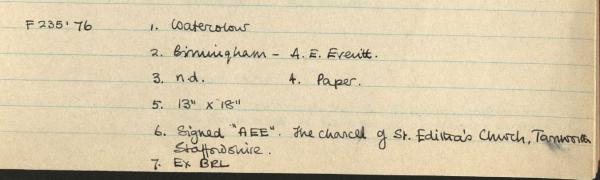 F235'76 1. Watercolour
2. Birmingham - A. E. Everitt.
3. n.d. 4. Paper.
5. 13" x 18"
6. Signed "AEE". The chancel of St. Editha's Church, Tamworth
Staffordshire.
7. Ex BRL